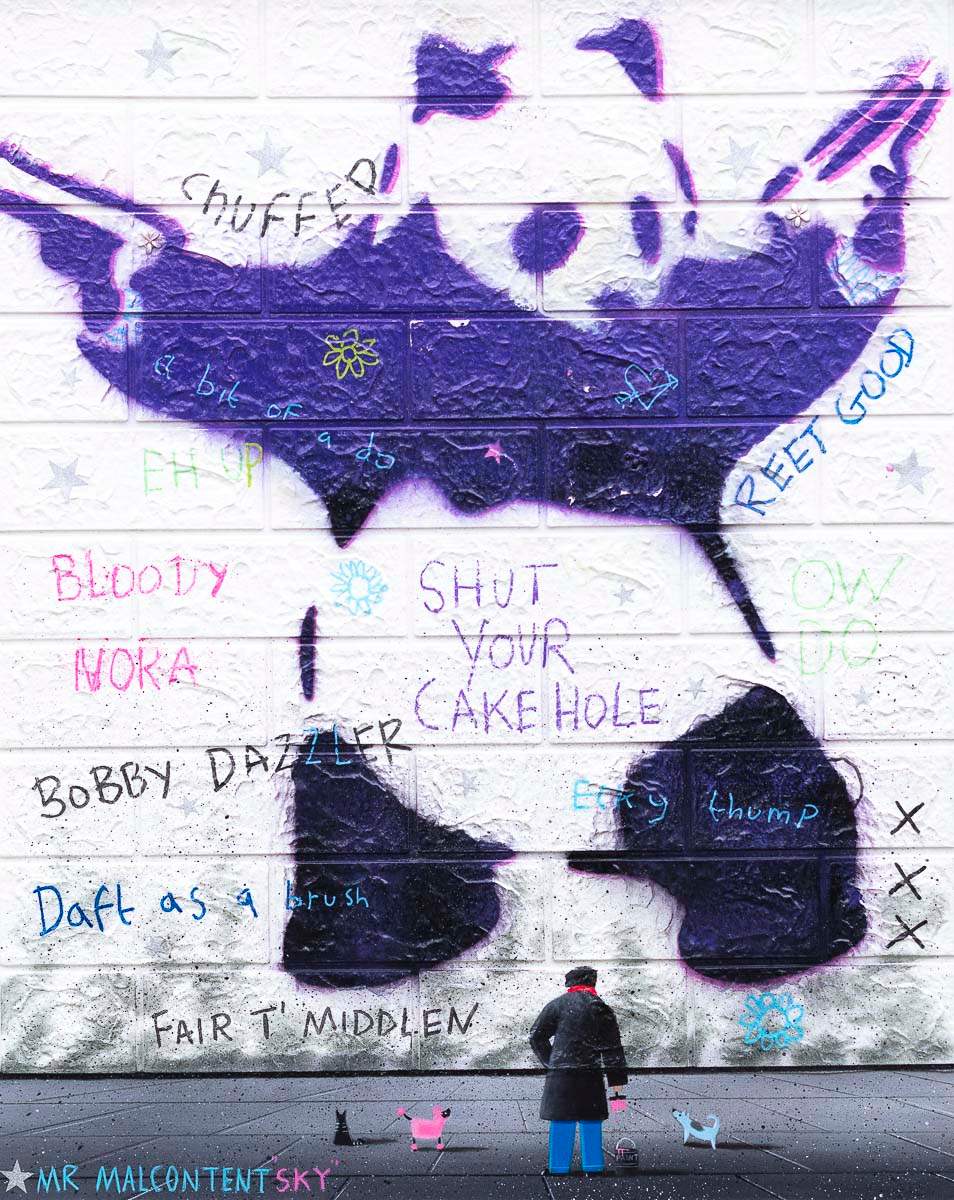 CHUFFED
a bit of
a do
EH UP
REET GOOD
BLOODY
NORA
SHUT
YOUR
CAKE HOLE
OW
DO
BOBBY DAZZLER
Ecky thump
X
X
X
Daft as a brush
FAIR T' MIDDLEN
PAINT
MR MALCONTENT "SKY"